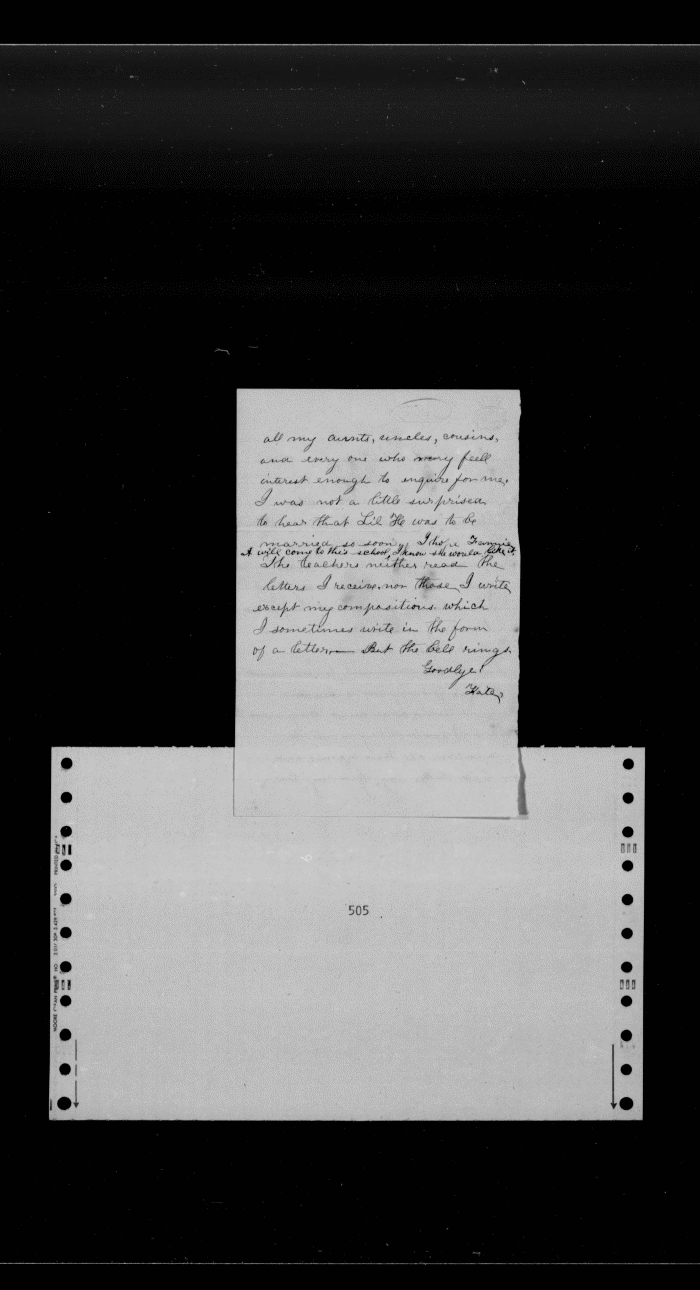 all my aunts, uncles, cousins,
and every one who may feel
interest enough to enquire for me.
I was not a little surprised
to hear that Lil He was to be
married so soon, I hope Fannie
A will come to this school, I know she would like it.
The teachers neither read the
letters I receive nor those I write
except my compositions which
I sometimes write in the form
of a letter— But the bell rings.
Goodbye!
Kate
505